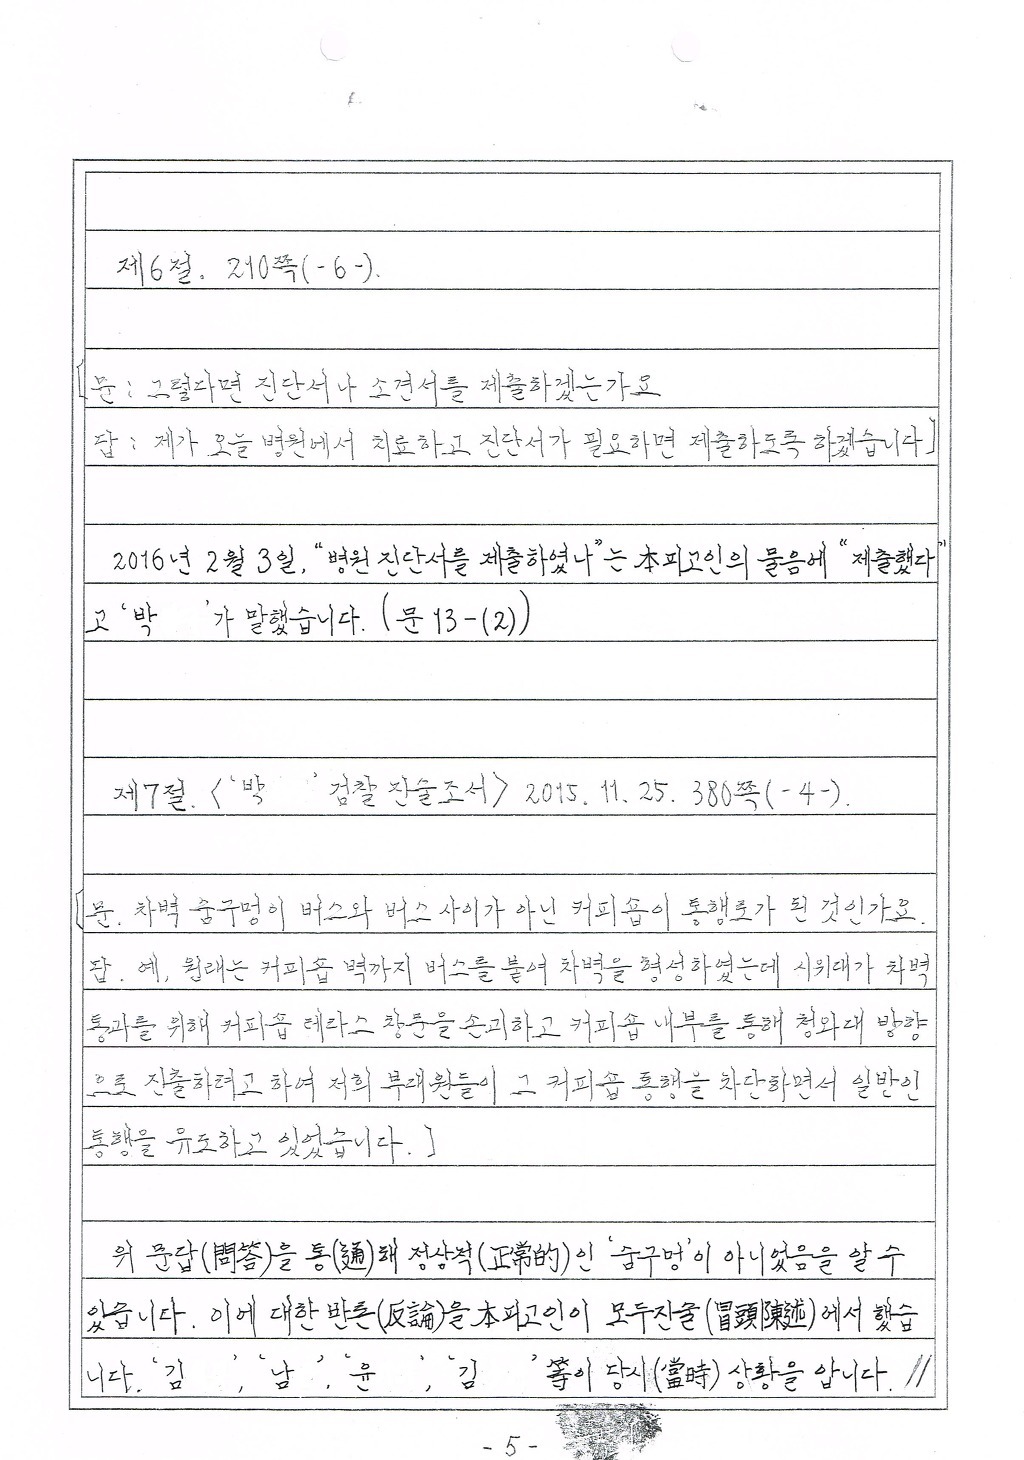 제6절. 210쪽(-6-).
[문: 그렇다면 진단서나 소견서를 제출하겠는가요
답: 제가 오늘 병원에서 치료하고 진단서가 필요하면 제출하도록 하겠습니다]
2016년 2월 3일, "병원 진단서를 제출하였나"는 本피고인의 물음에 "제출했다"
고 '박 '가 말했습니다. (문13-(2))
제7절. <'박 ' 검찰 진술조서> 2015. 11. 25. 380쪽(-4-).
[문. 차벽 숨구멍이 버스와 버스 사이가 아닌 커피숍이 통행로가 된 것인가요.
답. 예, 원래는 커피숍 벽까지 버스를 붙여 차벽을 형성하였는데 시위대가 차벽
통과를 위해 커피숍 테라스 창문을 손괴하고 커피숍 내부를 통해 청와대 방향
으로 진출하려고 하여 저희 부대원들이 그 커피숍 통행을 차단하면서 일반인
통행을 유도하고 있었습니다.]
위 문답(問答)을 통(通)해 정상적(正常的)인 '숨구멍'이 아니었음을 알 수
있습니다. 이에 대한 반론(反論)을 本피고인이 모두진술(冒頭陳述)에서 했습
니다. '김 ', '남 ', '윤 ', '김 ' 等이 당시(當時) 상황을 압니다. //
- 5 -